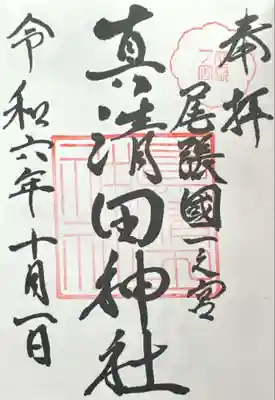 奉拝
尾張國一之宮
真清田神社
令和六年十月一日